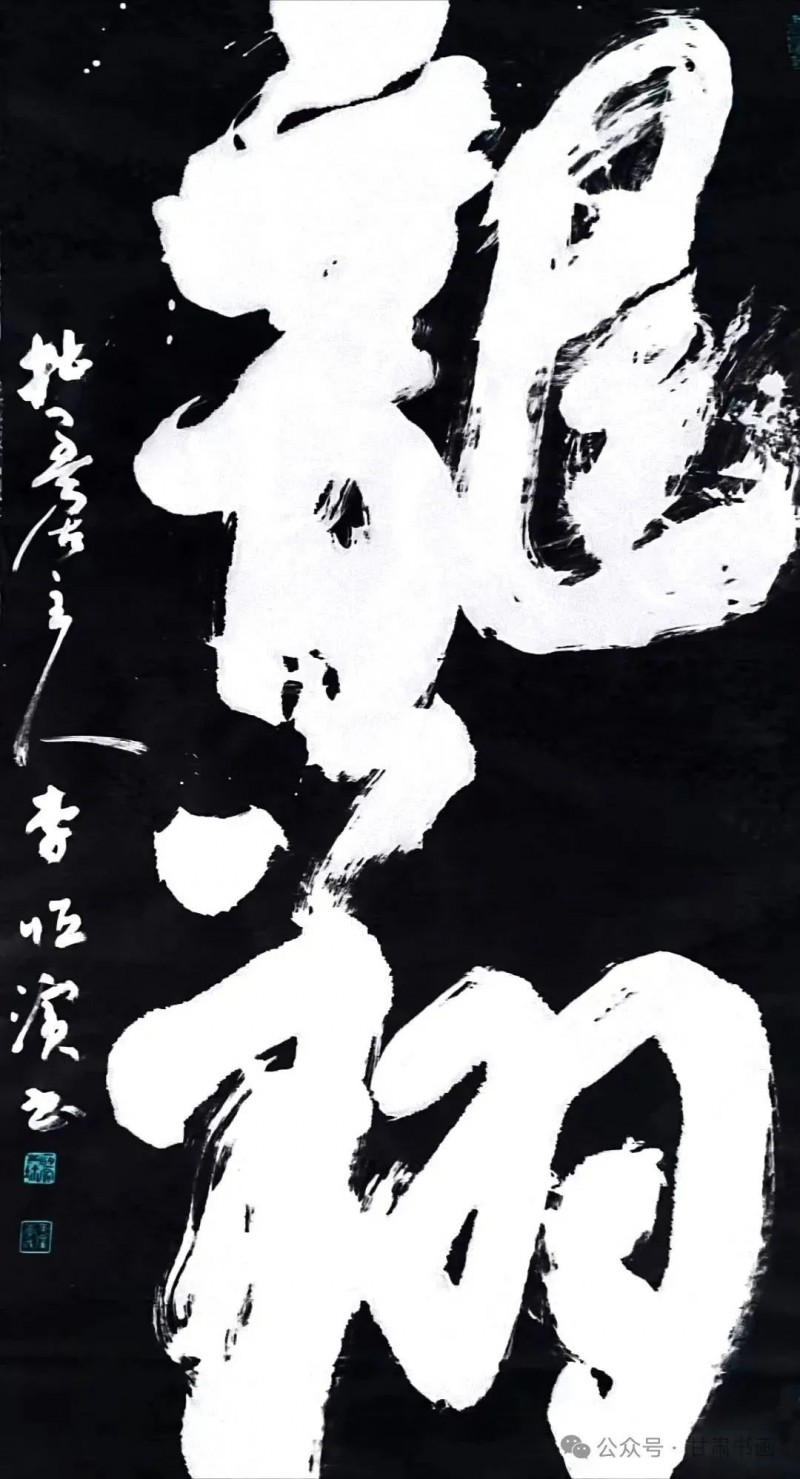 龍翔
居主人 李恒濱书
公众号 · 甘肃书画